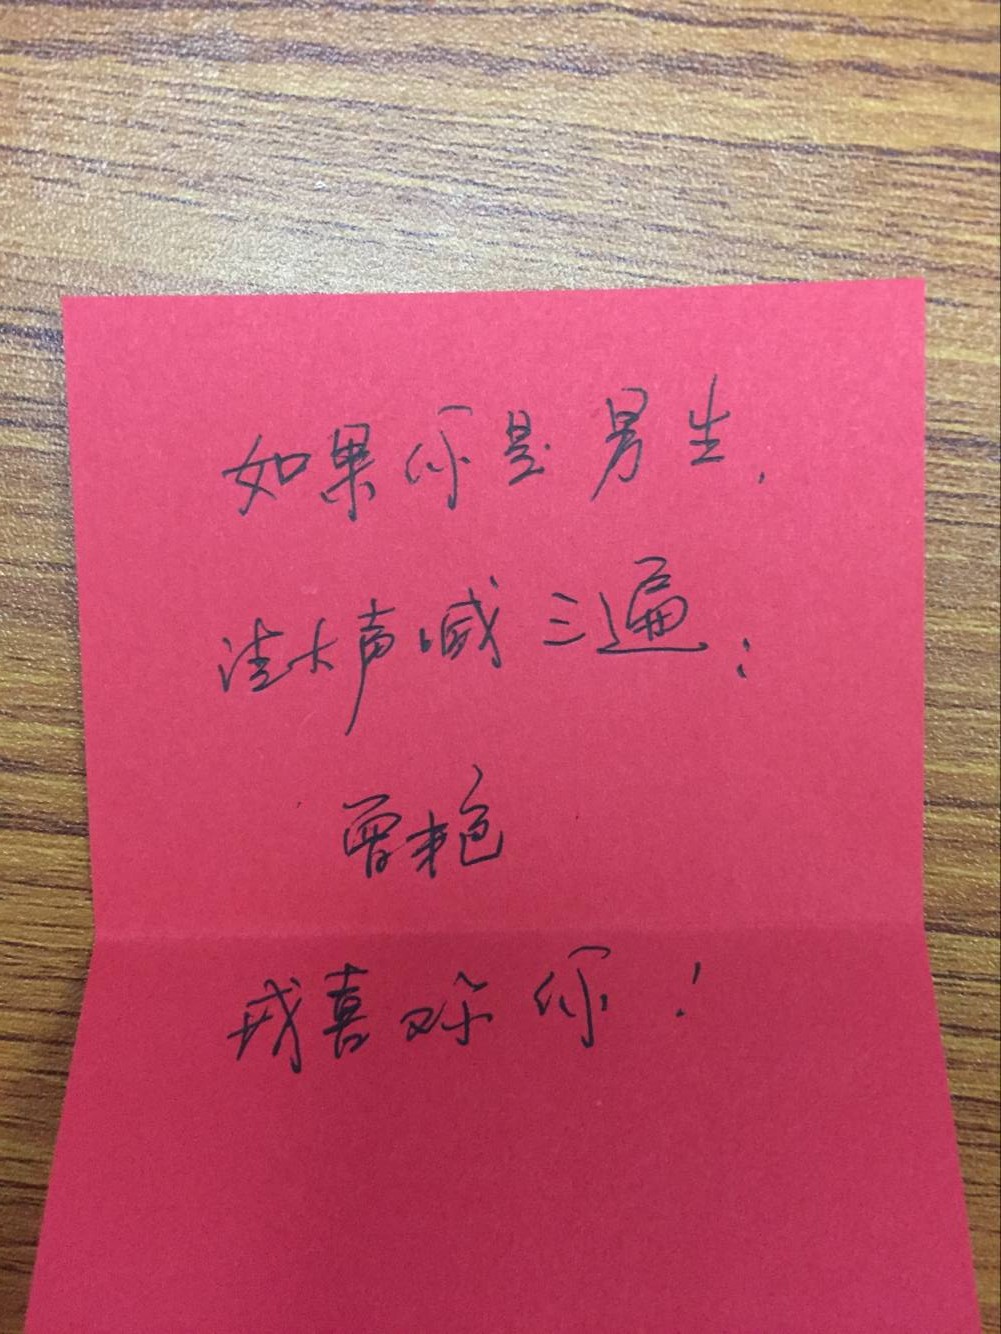 如果你是男生,
请大声喊三遍:
曾艳
我喜欢你!